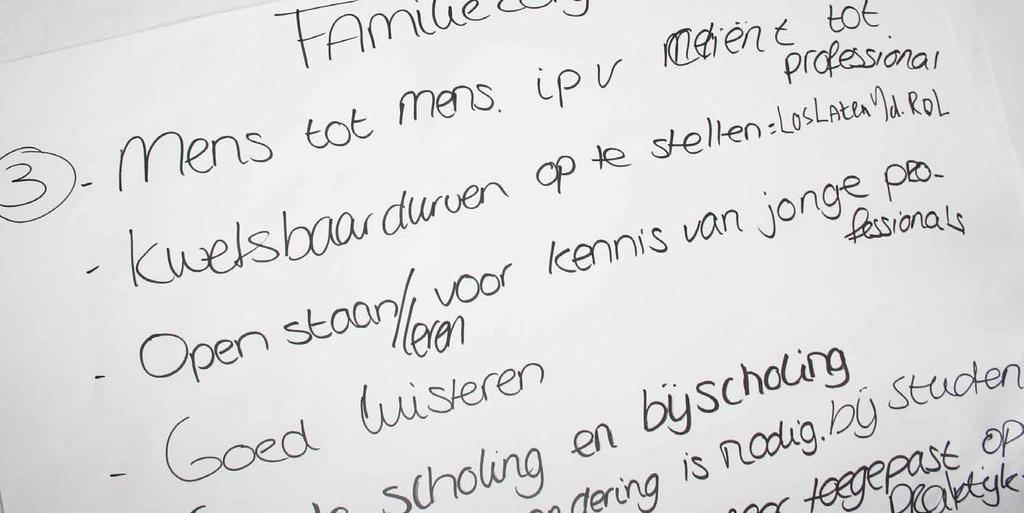 ③ - Mens tot mens. ipv tot
professional
- Kwetsbaar durven op te stellen = LOSLATEN v/d. ROL
- Open staan/leren voor kennis van jonge pro-
fessionals
- Goed luisteren
scholing en bijscholing
is nodig. bij studen
toegepast op
praktijk